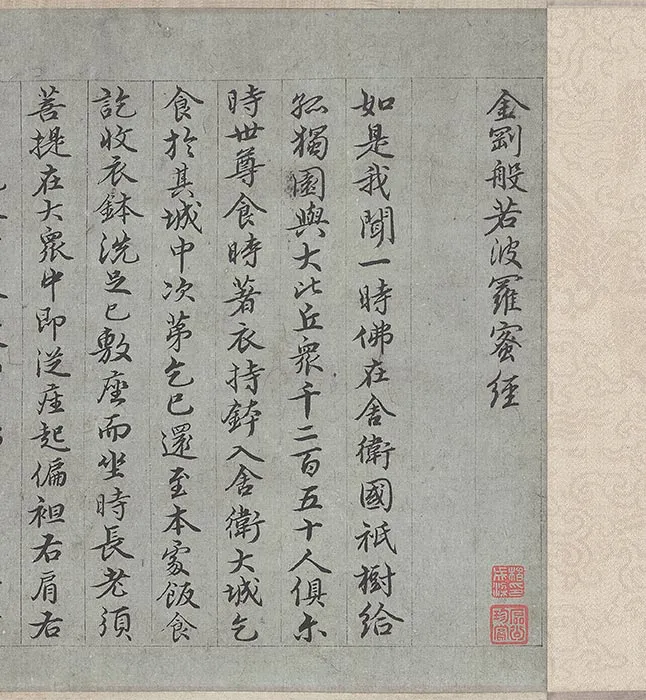 金剛般若波羅蜜經
如是我聞一時佛在舍衛國祇樹給
孤獨園與大比丘眾千二百五十人俱尒
時世尊食時著衣持鉢入舍衛大城乞
食於其城中次苐乞已還至本處飯食
訖收衣鉢洗足已敷座而坐時長老須
菩提在大眾中即從座起偏袒右肩右